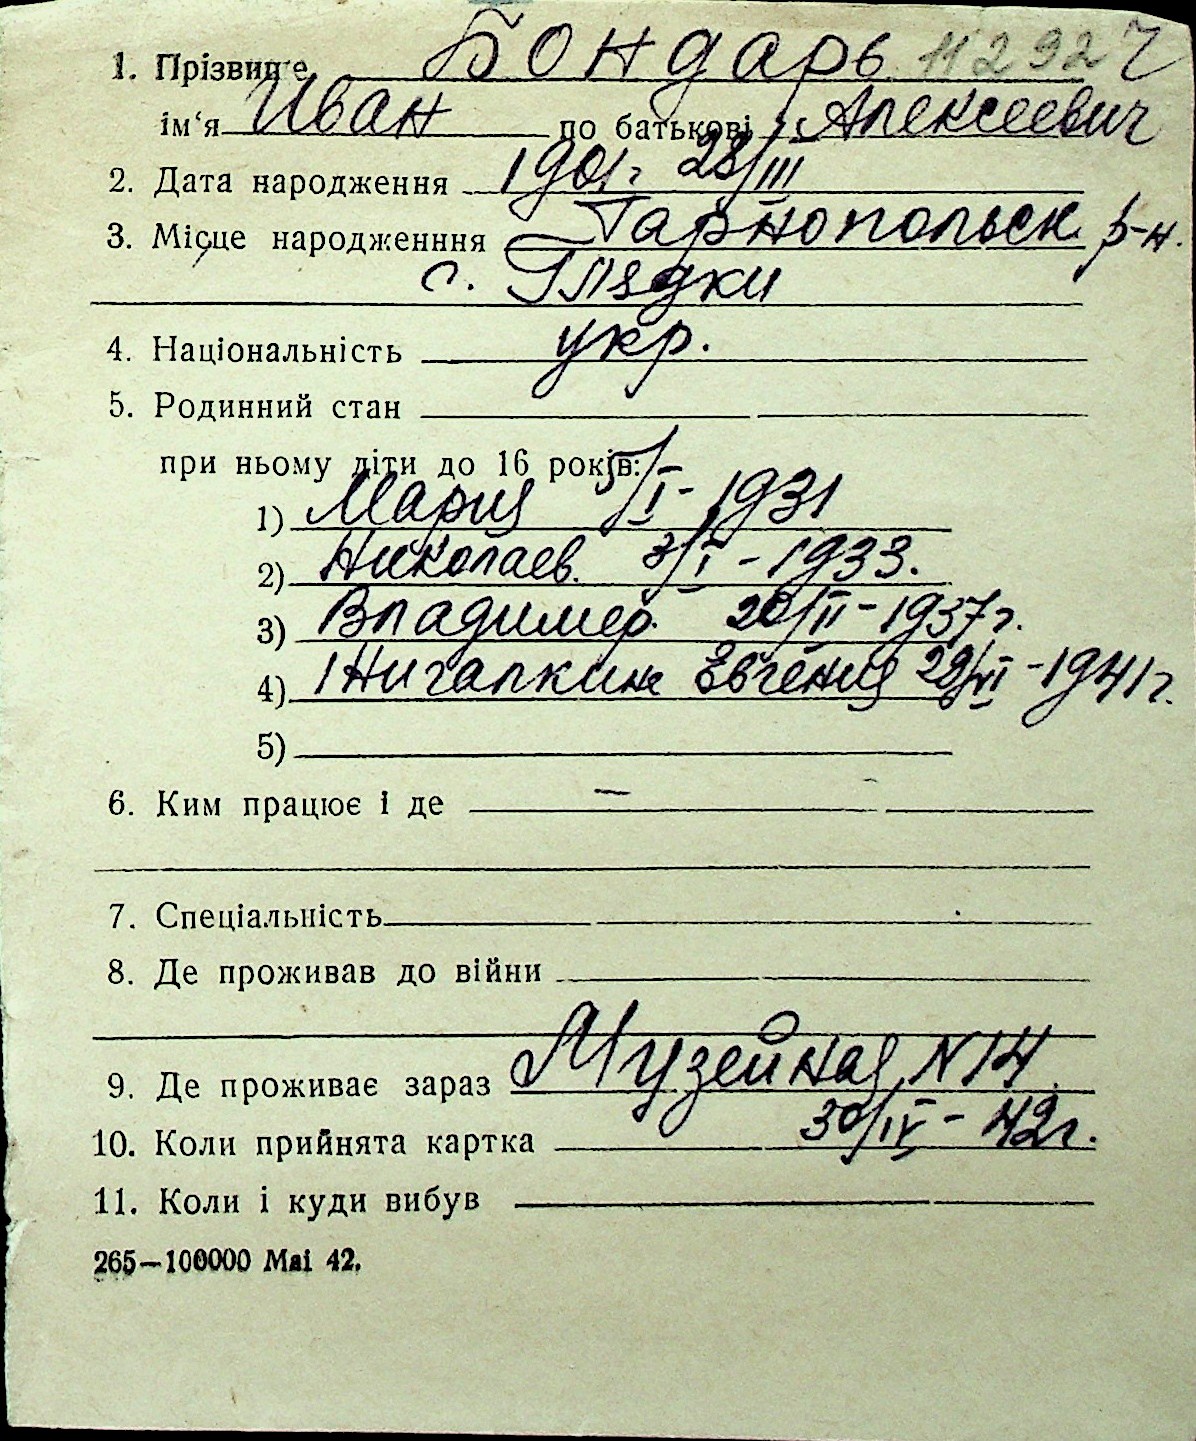 1. Прізвище Бондарь 11292
ім'я Иван по батькові Алексеевич
2. Дата народження 1901г 28/III
3. Місце народженння Тарнопольск р-н.
с. Глядки
4. Національність укр.
5. Родинний стан
при ньому діти до 16 років:
1) Мария 5/I - 1931
2) Николаев. 3/I - 1933.
3) Владимер. 20/II - 1937г.
4) Евгения 29/VI - 1941г.
5)
6. Ким працює і де —
7. Спеціальність
8. Де проживав до війни
9. Де проживає зараз Музейная N 14.
10. Коли прийнята картка 30/IV - 42г.
11. Коли і куди вибув
265—100000 Mai 42.